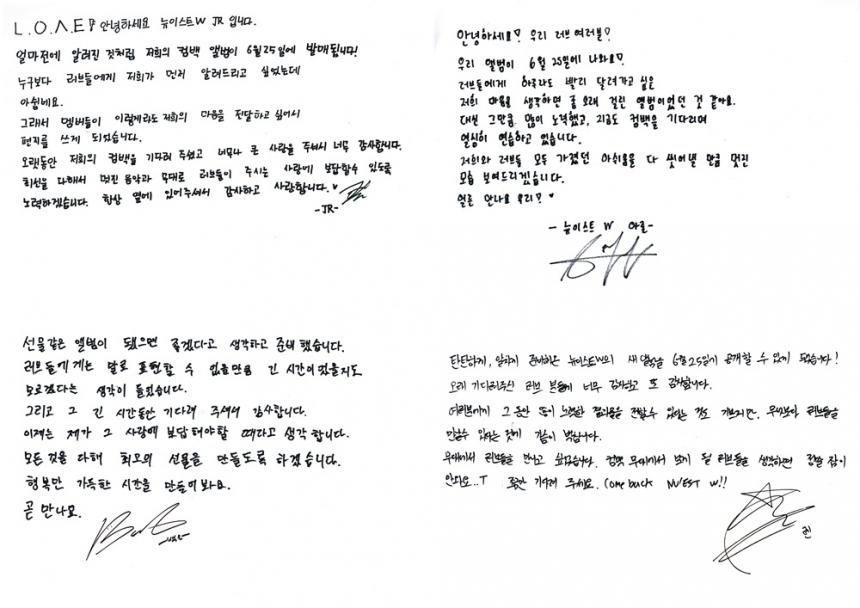 L.O.Λ.E! 안녕하세요 뉴이스트W JR 입니다.
얼마전에 알려진 것처럼 저희의 컴백 앨범이 6월25일에 발매됩니다!
누구보다 러브들에게 저희가 먼저 알려드리고 싶었는데
아쉽네요.
그래서 멤버들이 이렇게라도 저희의 마음을 전달하고 싶어서
편지를 쓰게 되었습니다.
오랫동안 저희의 컴백을 기다려 주셨고 너무나 큰 사랑을 주셔서 너무 감사합니다.
최선을 다해서 멋진 음악과 무대로 러브들이 주시는 사랑에 보답할수 있도록
노력하겠습니다. 항상 옆에 있어주셔서 감사하고 사랑합니다. ♥
-JR-
안녕하세요! 우리 러브 여러분!
우리 앨범이 6월 25일에 나와요!
러브들에게 하루라도 빨리 달려가고 싶은
저희 마음을 생각하면 좀 오래 걸린 앨범이었던 것 같아요.
대신 그만큼 많이 노력했고, 지금도 컴백을 기다리며
열심히 연습하고 있습니다.
저희와 러브들 모두 가졌던 아쉬움을 다 씻어낼 만큼 멋진
모습 보여드리겠습니다.
얼른 만나요 우리? ♥
- 뉴이스트 W 아론-
선물같은 앨범이 됐으면 좋겠다고 생각하고 준비했습니다.
러브들에게는 말로 표현할 수 없을만큼 긴 시간이었을지도
모르겠다는 생각이 들었습니다.
그리고 그 긴 시간동안 기다려 주셔서 감사합니다.
이제는 제가 그 사랑에 보답해야할 때라고 생각 합니다.
모든것을 다해 최고의 선물을 만들도록 하겠습니다.
행복만 가득한 시간을 만들어봐요.
곧 만나요.
탄탄하게, 알차게 준비한 뉴이스트W의 새 앨범을 6월25일에 공개할 수 있게 되었습니다!
오래 기다려주신 러브 분들께 너무 감사하고 또 감사합니다.
여러분에게 그 동안 노력한 결과물을 전달할 수 있다는 것도 기쁘지만, 무엇보다 러브들을
만날수 있다는 것에 가슴이 벅찹니다.
무대에서 러브들을 만나고 싶었습니다. 컴백 무대에서 보게 될 러브들을 생각하면 정말 잠이
안와요..T 조금만 기다려 주세요. Come back NU'EST W!!
렌